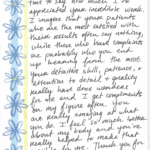 time to say how much I've
appreciated your incredible work.
I imagine that your patients
who are the most satisfied with
their results often say nothing
while those who have complaints
are probably who you end
up hearing from the most.
Your definitive skill, patience,
attention to detail & quality
really have done wonders
for me and I get compliments
on my figure often. You
are really amazing at what
you do. I feel so much better
about my body and you've
really helped to make that
for me. Thank you for